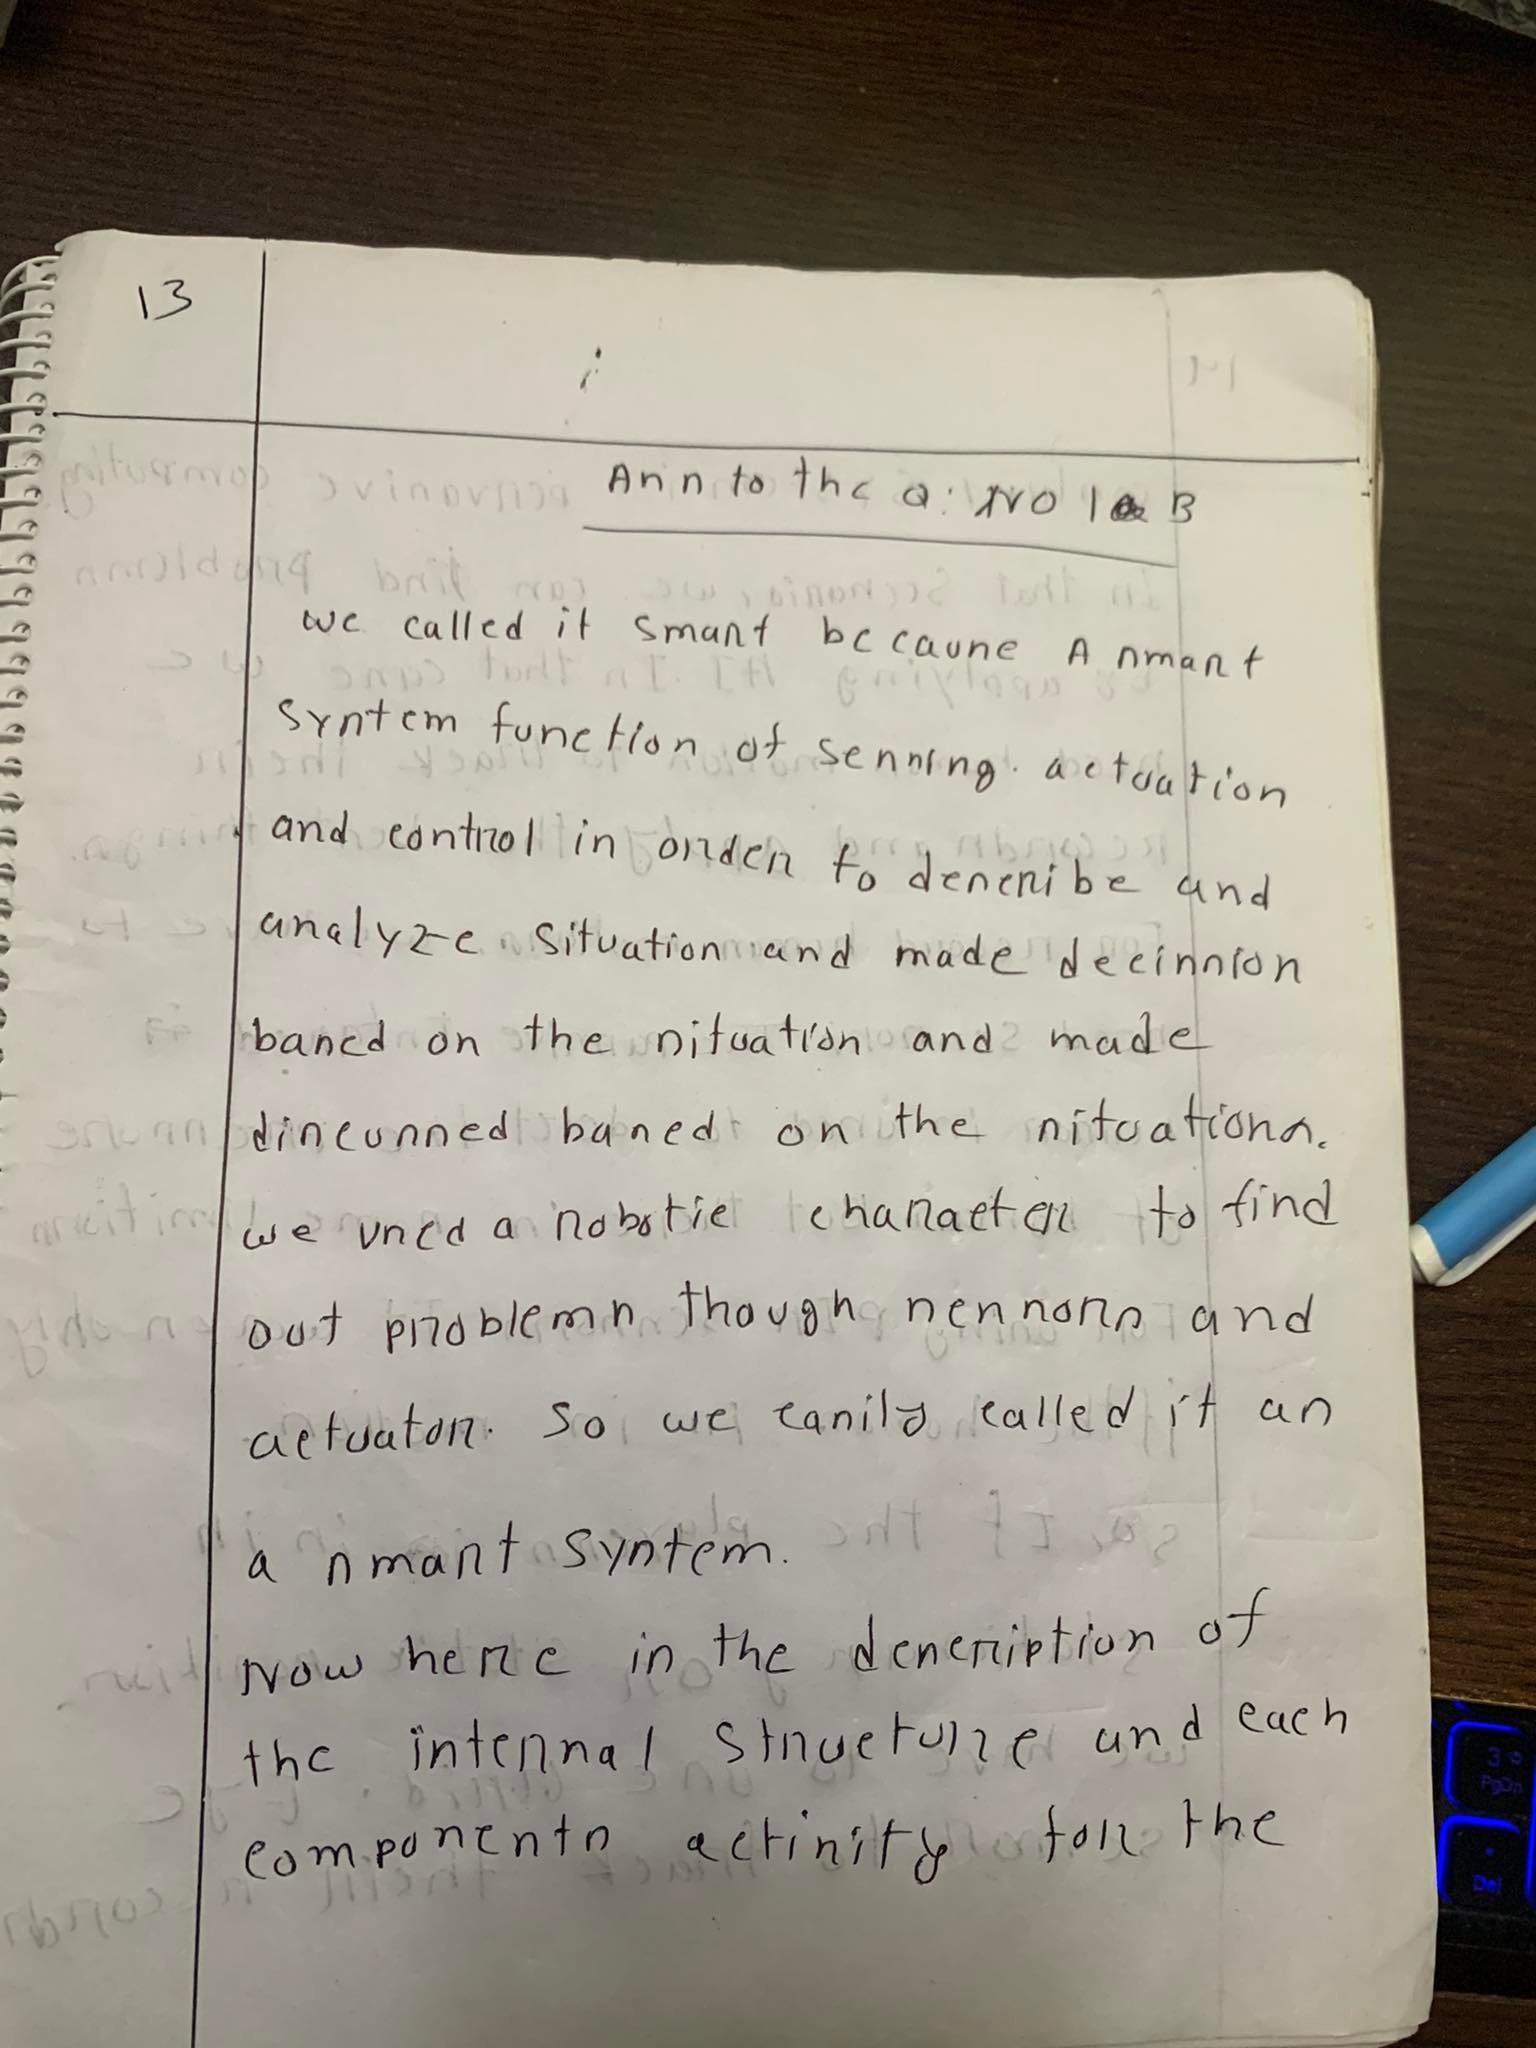 13
Ans to the Q: NO 1 B
we called it smart because A smart
system function of sensing. actuation
and control in order to describe and
analyze situation and made decission
based on the situation and made
discussed based on the situations.
we used a robotic character to find
out problems though sensors and
actuator. So we easily called it an
a smart system.
Now here in the description of
the internal structure and each
components activity for the
3
PgDn
.
Del